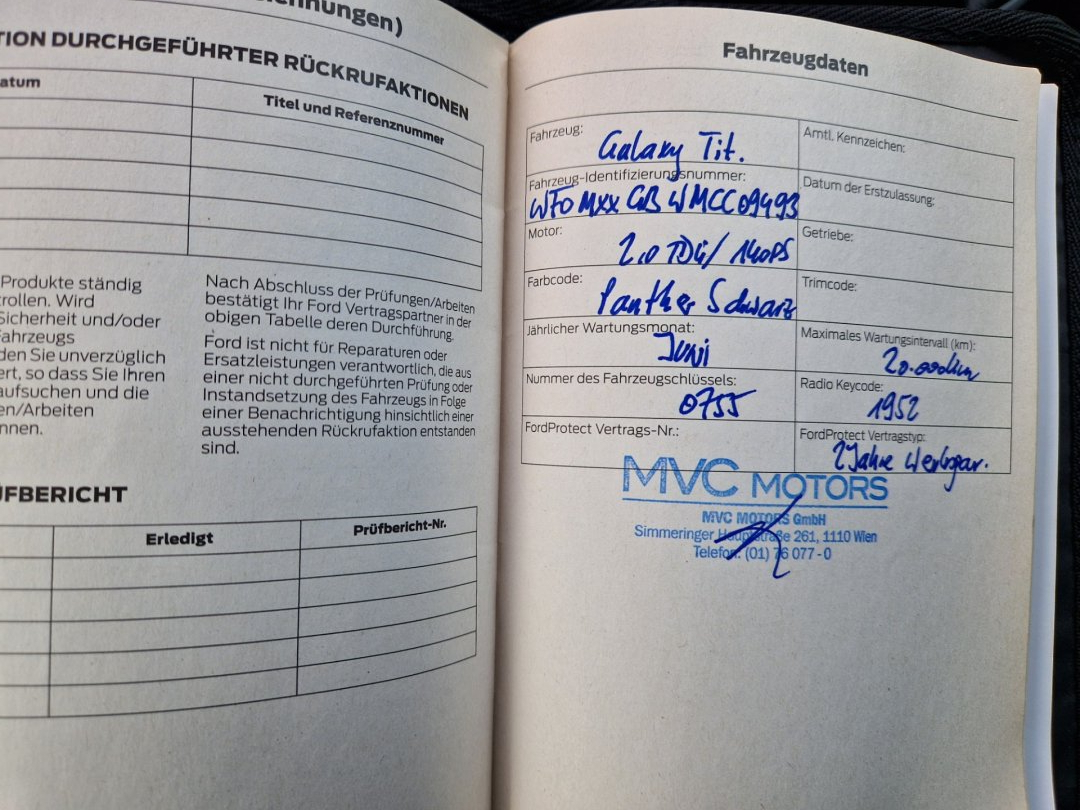 nnungen)
TION DURCHGEFÜHRTER RÜCKRUFAKTIONEN
atum
Titel und Referenznummer
Produkte ständig
rollen. Wird
Sicherheit und/oder
Fahrzeugs
den Sie unverzüglich
ert, so dass Sie Ihren
aufsuchen und die
en/Arbeiten
nnen.
Nach Abschluss der Prüfungen/Arbeiten
bestätigt Ihr Ford Vertragspartner in der
obigen Tabelle deren Durchführung.
Ford ist nicht für Reparaturen oder
Ersatzleistungen verantwortlich, die aus
einer nicht durchgeführten Prüfung oder
Instandsetzung des Fahrzeugs in Folge
einer Benachrichtigung hinsichtlich einer
ausstehenden Rückrufaktion entstanden
sind.
ÜFBERICHT
Erledigt
Prüfbericht-Nr.
Fahrzeugdaten
Fahrzeug: Galaxy Tit.
Amtl. Kennzeichen:
Fahrzeug-Identifizierungsnummer:
WF0MXXGBWMCC09493
Datum der Erstzulassung:
Motor: 2.0 TDCi/ 140PS
Getriebe:
Farbcode: Panther Schwarz
Trimcode:
Jährlicher Wartungsmonat:
Juni
Maximales Wartungsintervall (km):
20.000km
Nummer des Fahrzeugschlüssels:
0755
Radio Keycode:
1952
FordProtect Vertrags-Nr.:
FordProtect Vertragstyp:
2 Jahre Werksgar.
MVC MOTORS
MVC MOTORS GmbH
Simmeringer Hauptstraße 261, 1110 Wien
Telefon: (01) 76 077-0